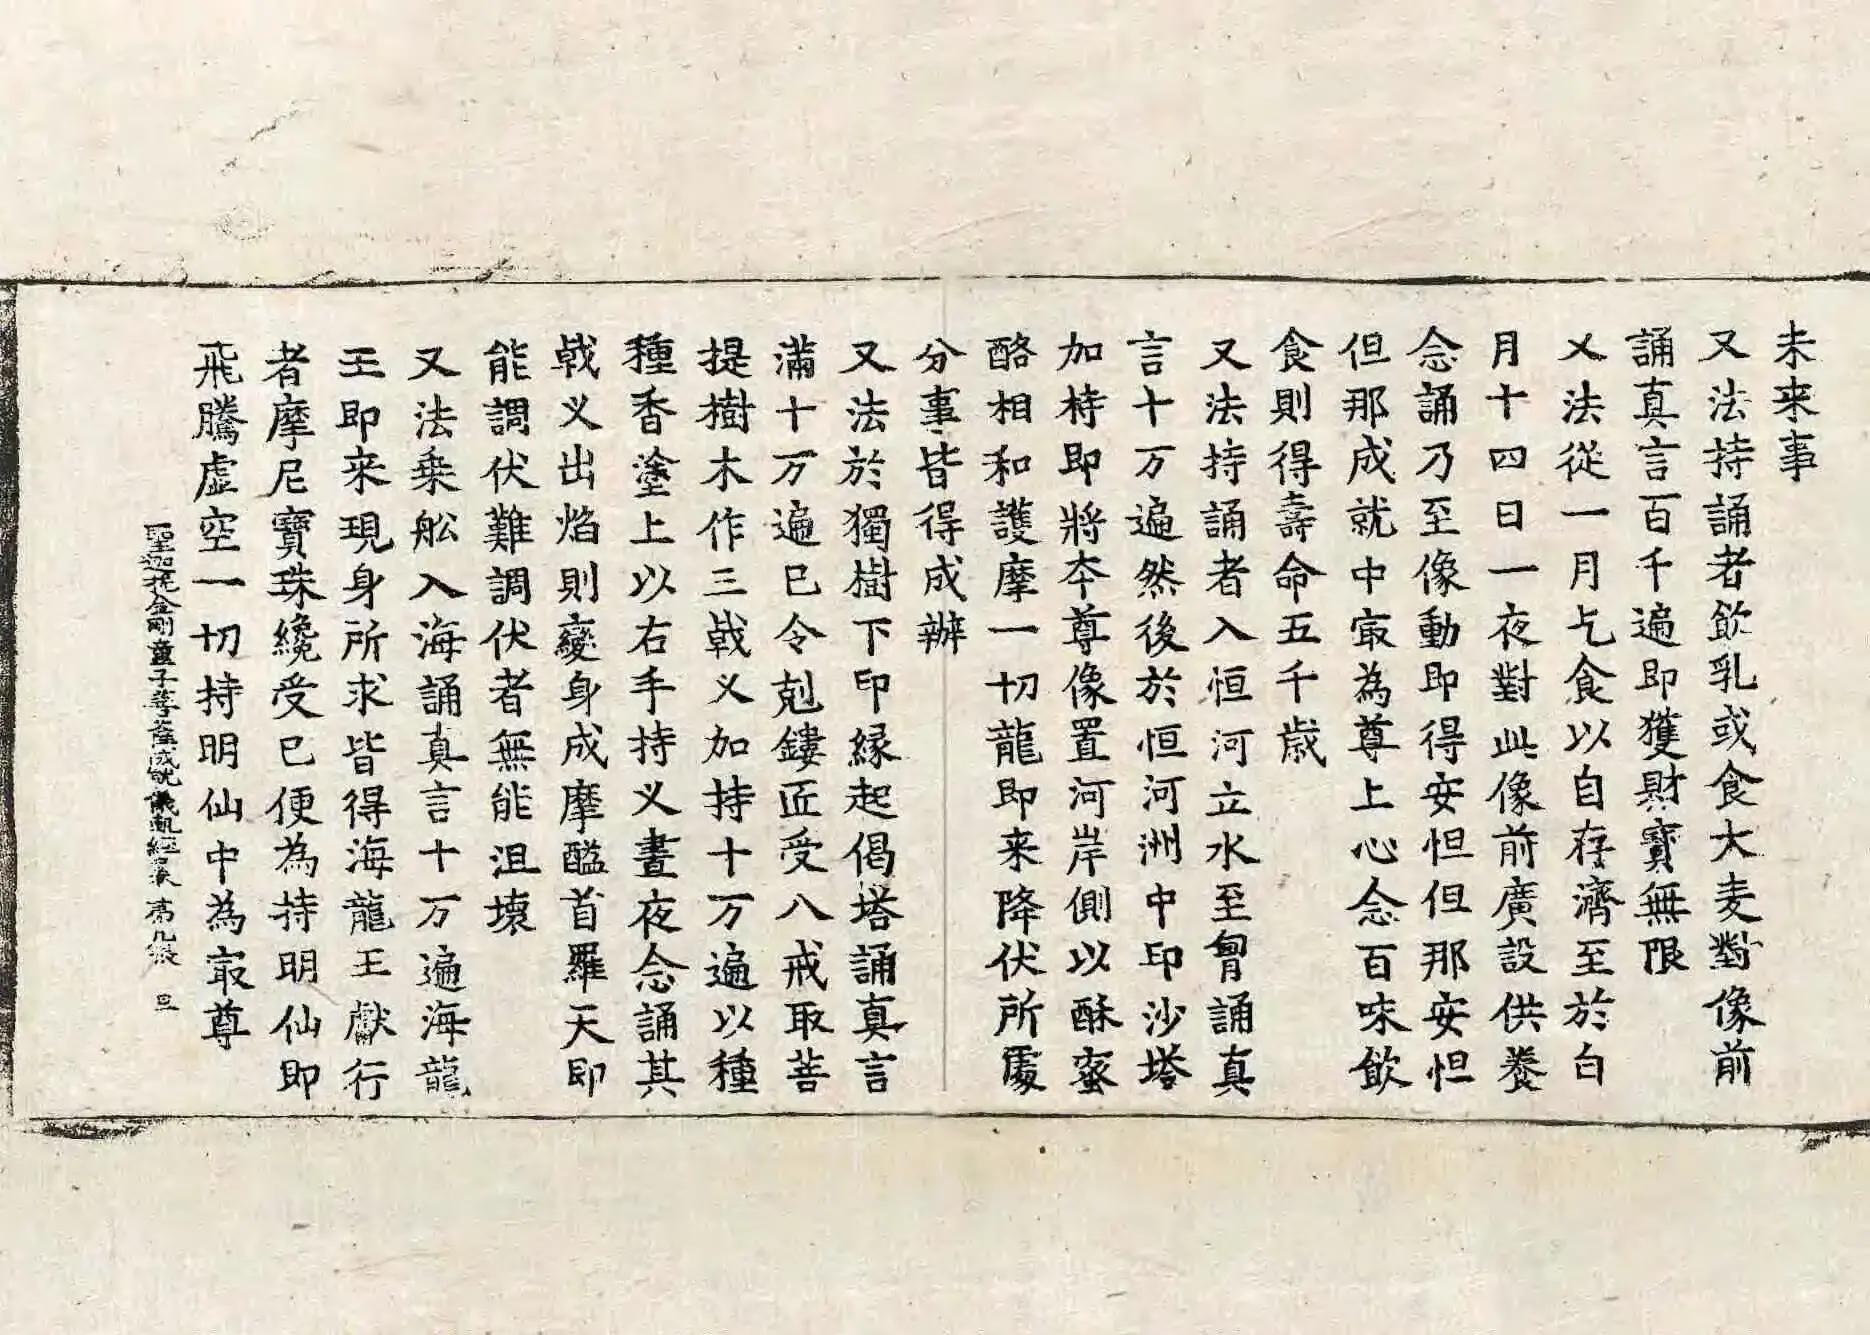 未来事
又法持誦者飲乳或食大麦對像前
誦真言百千遍即獲財寶無限
又法從一月乞食以自存濟至於白
月十四日一夜對此像前廣設供養
念誦乃至像動即得安怛但那安怛
但那成就中㝡為尊上心念百味飲
食則得壽命五千歲
又法持誦者入恒河立水至𦚾誦真
言十万遍然後於恒河洲中印沙塔
加持即將夲尊像置河岸側以酥蜜
酪相和護摩一切龍即来降伏所處
分事皆得成辦
又法於獨樹下印縁起偈塔誦真言
滿十万遍已令剋鏤匠受八戒取菩
提樹木作三戟义加持十万遍以種
種香塗上以右手持义晝夜念誦其
戟义出焰則變身成摩醯首羅天即
能調伏難調伏者無能沮壞
又法乗舩入海誦真言十万遍海龍
王即来現身所求皆得海龍王獻行
者摩尼寶珠纔受已便為持明仙即
飛騰虚空一切持明仙中為㝡尊
聖迦抳金剛童子菩薩成就儀軌經 第九張